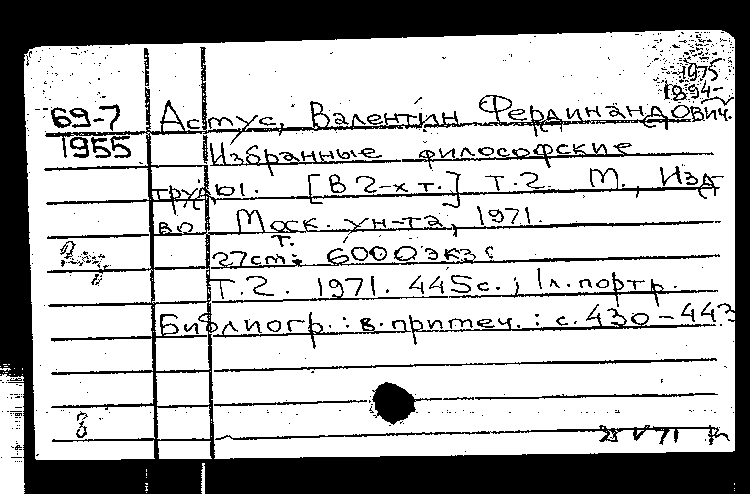 1975
1894-
69-7 Асмус, Валентин Фердинандович.
1955 Избранные философские
труды. [В 2-х т.] Т.2. М., Изд-
во Моск. ун-та, 1971.
т.
27см. 6000экз.
Т.2. 1971. 445с.; 1л.портр.
Библиогр.: в.примеч.: с.430-443
8
28 V 71